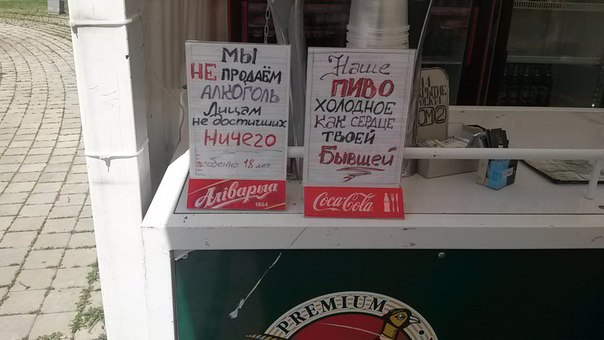 Мы
НЕ ПРОДАЁМ
АЛКОГОЛЬ
Лицам
не достигших
Ничего
особенно 18 лет
Аліварыя
1864
Наше
ПИВО
ХОЛОДНОЕ
КАК СЕРДЦЕ
ТВОЕЙ
Бывшей
Coca-Cola
PREMIUM